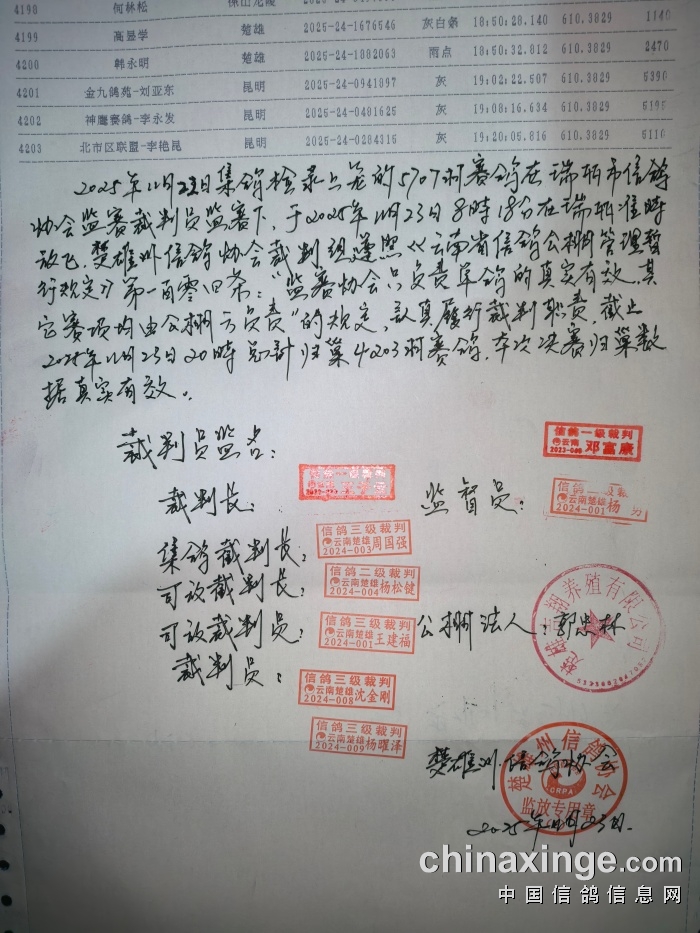 4198 何林松
4199 高显学 楚雄 2025-24-1676546 灰白条 18:50:28.140 610.3829 1140
4200 韩永明 楚雄 2025-24-1882063 雨点 18:50:32.812 610.3829 2470
4201 金九鸽苑-刘亚东 昆明 2025-24-0941897 灰 19:02:22.507 610.3829 5390
4202 神鹰赛鸽-李永发 昆明 2025-24-0481625 灰 19:08:16.634 610.3829 5195
4203 北市区联盟-李艳昆 昆明 2025-24-0284315 灰 19:20:05.816 610.3829 5110
2025年11月22日集鸽检录上笼的5707羽赛鸽在瑞丽市信鸽
协会监赛裁判员监赛下,于2025年11月23日8時18分在瑞丽准時
放飞,楚雄州信鸽协会裁判组遵照《云南省信鸽公棚管理暂
行规定》第一百零四条:"监赛协会只负责单鸽的真实有效,其
它赛项均由公棚方负责"的规定,认真履行裁判职责,截止
2025年11月23日20時总計归巢4203羽赛鸽,本次决赛归巢数
据真实有效。
裁判员签名:
信鸽一级裁判
云南
邓富康
裁判长:
监督员:
信鸽一级裁
云南楚雄
2024-001 杨
集鸽裁判长:
信鸽三级裁判
云南楚雄
2024-003 周国强
司放裁判长:
信鸽二级裁判
云南楚雄
2024-004 杨松健
司放裁判员:
信鸽三级裁判
云南楚雄
2024-001 王建福
公棚法人:郭忠林
养殖有限公司
裁判员:
信鸽三级裁判
云南楚雄
2024-008 沈金刚
信鸽三级裁判
云南楚雄
2024-009 杨曜泽
楚雄州信鸽协会
楚雄州信鸽协会
CRPA
监放专用章
2025年11月23日.
chinaxinge.com
中国信鸽信息网